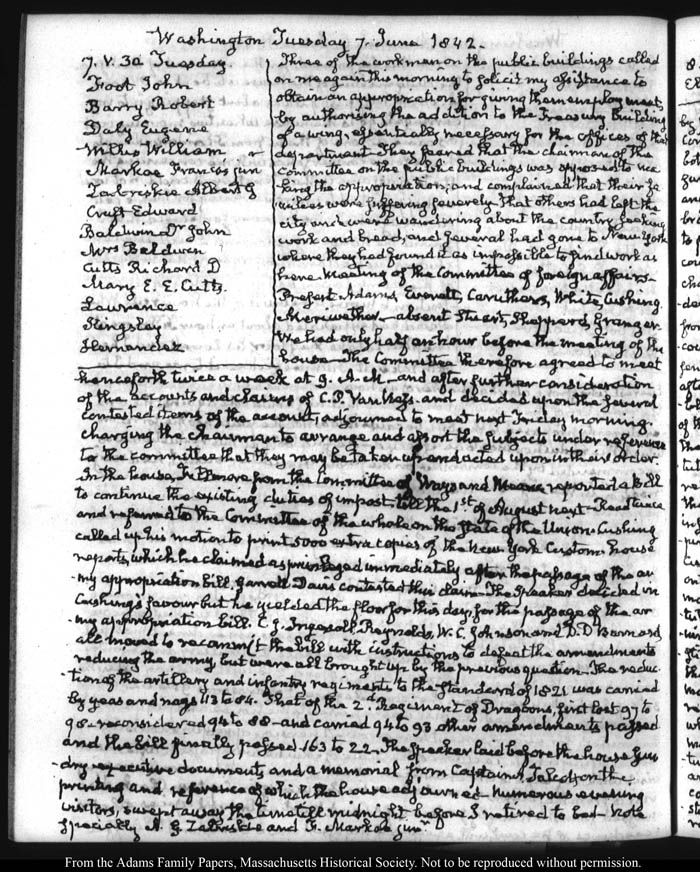 Washington Tuesday 7. June 1842.
7. V. 30 Tuesday.
Foot John
Barry Robert
Daly Eugene
Willis William
Markoe Francis jun r
Zabriskie Albert G
Cruft Edward
Baldwin Dr John
Mrs Baldwin
Cutts Richard D
Mary E. E. Cutts.
Lawrence
Kingsley
Hernandez
Three of the workmen on the public buildings called
on me again this morning to solicit my assistance to
obtain an appropriation for giving them employment
by authorising the addition to the Treasury Building
of a wing, essentially necessary for the offices of that
department. They feared that the chairman of the
committee on the public buildings was opposed to ma
king the appropriation, and complained that their fa
milies were suffering severely. That others had left the
city and were wandering about the country seeking
work and bread, and several had gone to New-York
where they had found it as impossible to find work as
here. Meeting of the Committee of foreign affairs.
Present Adams, Everett, Caruthers, White, Cushing,
Meriwether. absent Stuart, Shepperd, Granger.
We had only half an hour before the meeting of the
house. The Committee therefore agreed to meet
henceforth twice a week at 9. A.M. and after further consideration
of the accounts and claims of C. P. Van Ness. and decided upon the several
contested items of the account, adjourned to meet next Friday morning.
charging the chairman to arrange and assort the subjects under reference
to the committee that they may be taken up and acted upon in their order.
In the house, Fillmore from the Committee of Ways and Means reported a Bill
to continue the existing duties of impost till the 1st of August next. Read twice
and referred to the Committee of the whole on the State of the Union. Cushing
called up his motion to print 5000 extra copies of the New York Custom house
reports, which he claimed as privileged immediately after the passage of the ar
-my appropriation bill. Garrett Davis contested this claim. The Speaker decided in
Cushing's favour but he yielded the floor for this day, for the passage of the ar
-my appropriation bill. C. J. Ingersoll, Reynolds, W. C. Johnson and D. D Barnard,
all moved to recommit the bill with instructions to defeat the amendments
reducing the army, but were all brought up by the previous question. The reduc
-tion of the artillery and infantry regiments to the standard of 1821 was carried
by yeas and nays 113 to 84. That of the 2d Regiment of Dragoons, first lost 97 to
98. reconsidered 94 to 88 and carried 94 to 93 other amendments passed
and the Bill finally passed 163 to 22. The Speaker laid before the house sun
-dry executive documents and a memorial from Captain on the
printing and reference of which the house adjourned. Numerous evening
visitors, swept away the time till midnight before I retired to bed. Note
specially A. G. Zabriskie and F. Markoe junr.
From the Adams Family Papers, Massachusetts Historical Society. Not to be reproduced without permission.